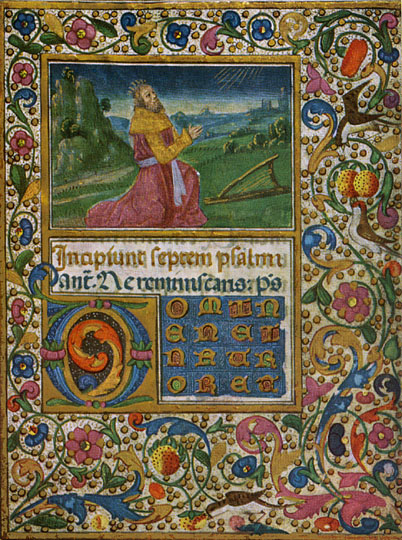 Incipiunt septem psalmi
Ant. Ne reminiscaris: ps
D OMIN
ENEI
NFUR
ORET